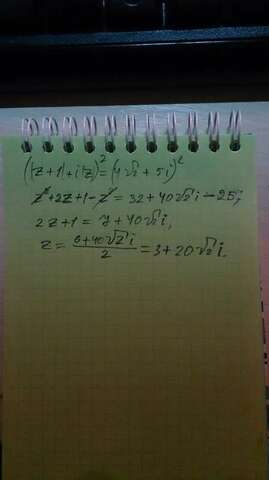 (|z+1|+iz)²=(4√2+5i)²
z²+2z+1-z²=32+40√2i-25;
2z+1=7+40√2i,
z=(6+40√2i)/2=3+20√2i.